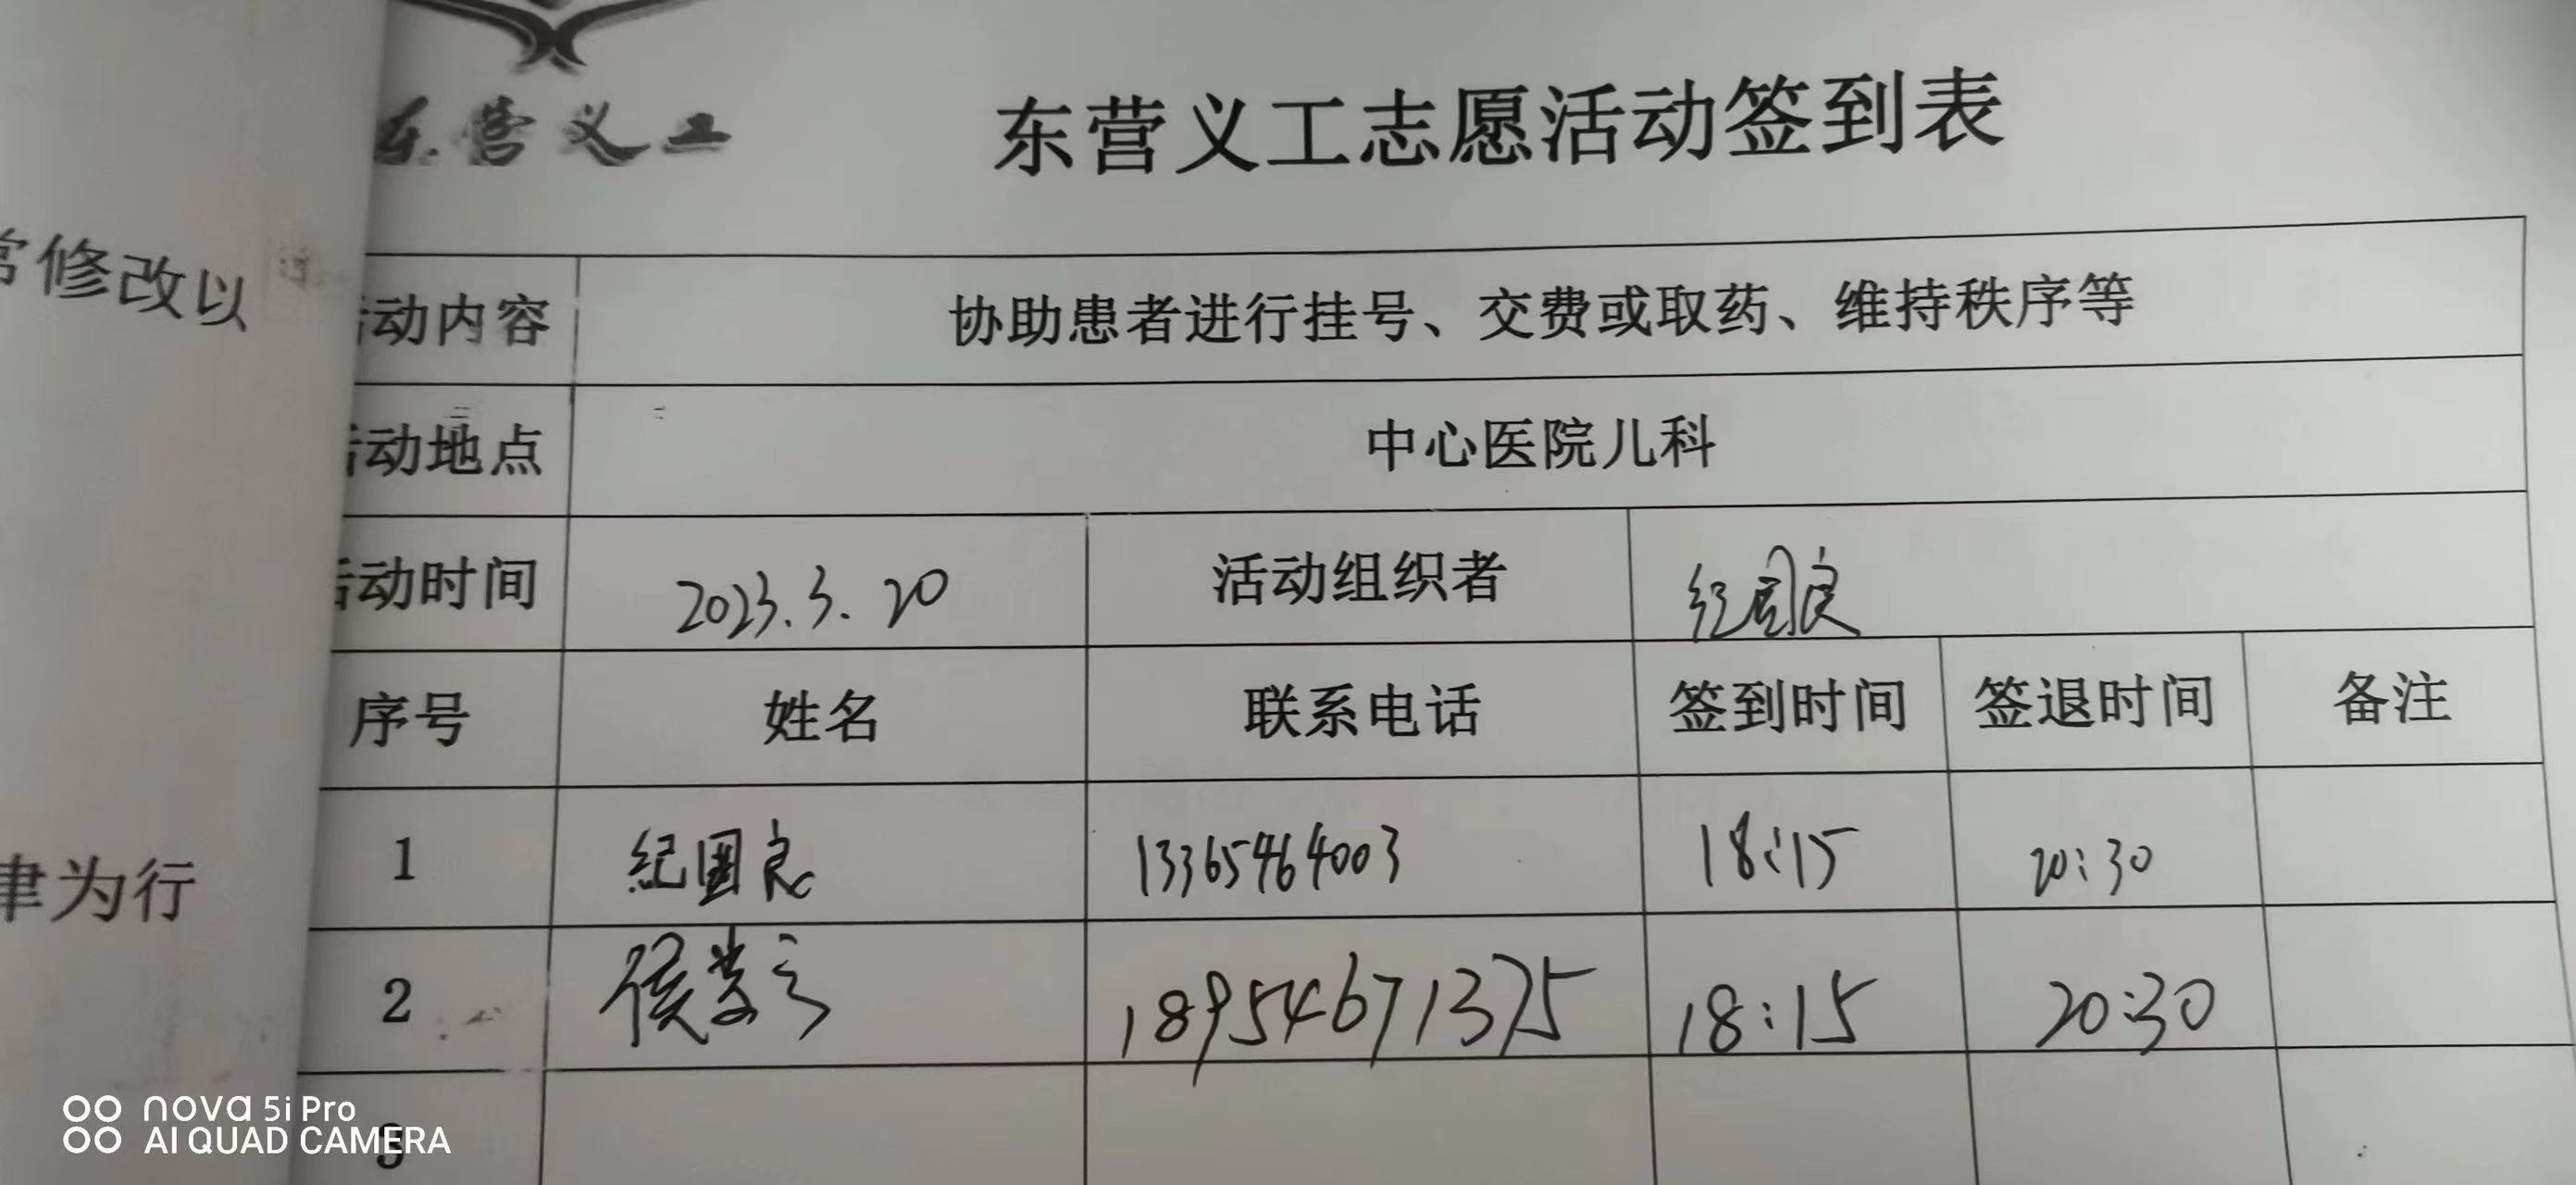 东营义工
东营义工志愿活动签到表
常修改以
活动内容 协助患者进行挂号、交费或取药、维持秩序等
活动地点 中心医院儿科
活动时间 2023.3.20 活动组织者 纪国良
序号 姓名 联系电话 签到时间 签退时间 备注
1 紀國良 13365464003 18:15 20:30
律为行
2 侯 18954671375 18:15 20:30
3
nova 5i Pro
AI QUAD CAMERA